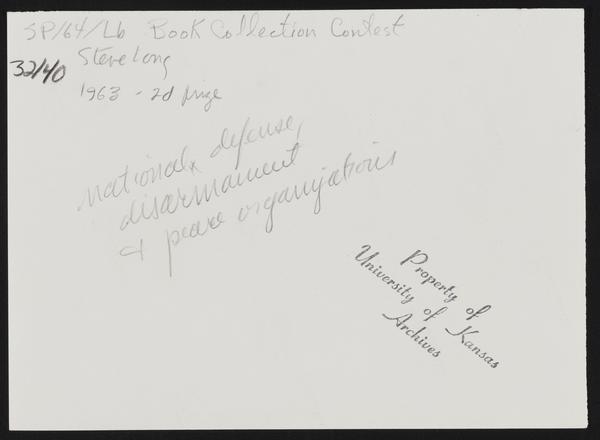 SP/64/Lb Book Collection Contest
Steve Long
32/40
1963 - 2d prize
national defense,
disarmament
& peace organizations
Property of
University of Kansas
Archives